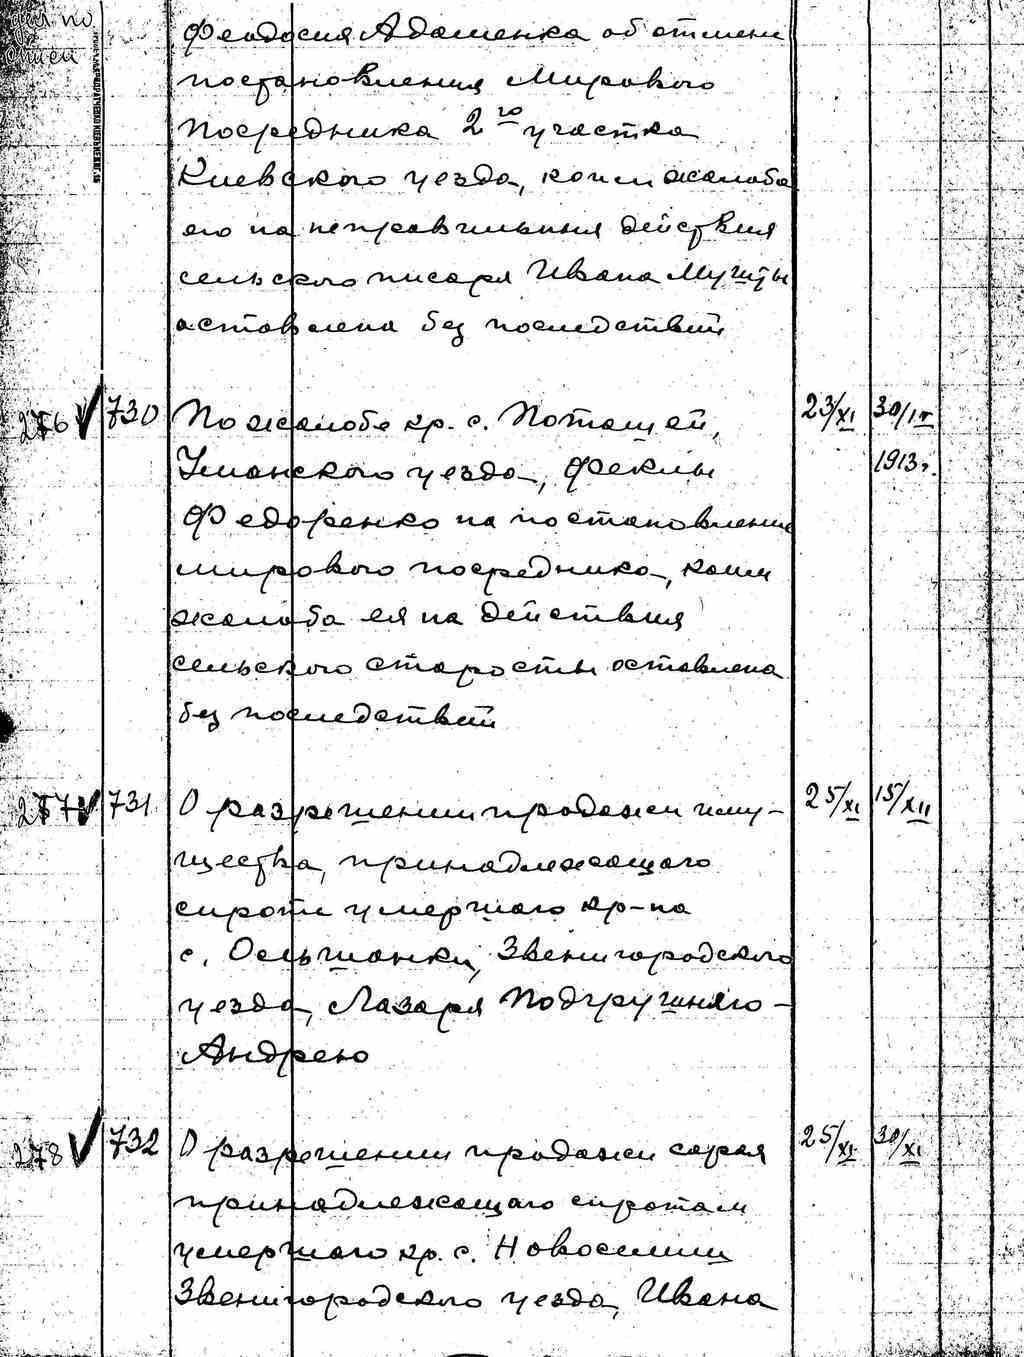 Феодосия Адаменка об отмени
постановления Мирового
Посредника 2го участка
Киевского уезда, коим жалоба
его на неправильныя действия
сельского писаря Ивана
оставлена без последствий
276 730 По жалобе кр. с. Поташей, 23/XI 30/IV
Уманского уезда, Феклы 1913 г.
Федоренко на постановление
мирового посредника, коим
жалоба ея на действия
сельского старосты оставлена
без последствий
277 731 О разрешении продажи иму- 25/XI 15/XII
щества, принадлежащого
сироти умершаго кр-на
с. Ольшанки, Звенигородского
уезда, Лазаря
Андрею
278 732 О разрешении продажи сарая 25/XI 30/XI
принадлежащаго сиротам
умершаго кр. с. Новоселици
Звенигородского уезда, Ивана